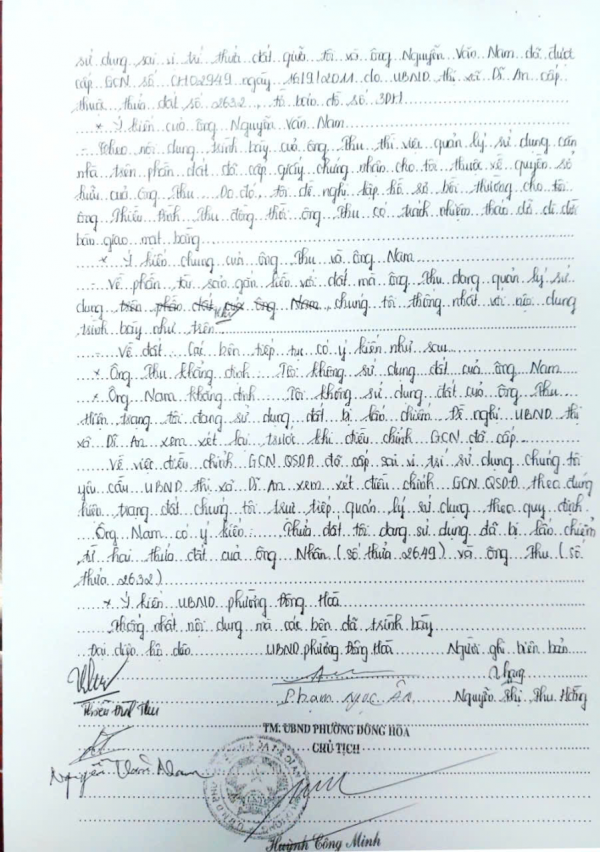 sử dụng sai vị trí thửa đất giữa tôi và ông Nguyễn Văn Nam đã được
cấp GCN số CH02949 ngày 16/9/2011 do UBND thị xã Dĩ An cấp
thuộc thửa đất số 2632, tờ bản đồ số 3DH
* Ý kiến của ông Nguyễn Văn Nam
- Theo nội dung trình bày của ông Thu thì việc quản lý sử dụng căn
nhà trên phần đất đã cấp giấy chứng nhận cho tôi thuộc về quyền sở
hữu của ông Thu. Do đó, tôi đề nghị lập hồ sơ bồi thường cho tôi
ông Thiều Đình Thu đồng thời ông Thu có trách nhiệm tháo dỡ di dời
bàn giao mặt bằng
* Ý kiến chung của ông Thu và ông Nam
- Về phần tài sản gắn liền với đất mà ông Thu đang quản lý sử
dụng trên phần đất của ông Nam, chúng tôi thống nhất với nội dung
trình bày như trên
- Về đất: Các bên tiếp tục có ý kiến như sau
* Ông Thu khẳng định: Tôi không sử dụng đất của ông Nam
* Ông Nam khẳng định: Tôi không sử dụng đất của ông Thu
Hiện trạng tôi đang sử dụng đất bị lấn chiếm. Đề nghị UBND thị
xã Dĩ An xem xét lại trước khi điều chỉnh GCN đã cấp
Về việc điều chỉnh GCN QSDĐ đã cấp sai vị trí sử dụng chúng tôi
yêu cầu UBND thị xã Dĩ An xem xét điều chỉnh GCN QSDĐ theo đúng
hiện trạng đất chúng tôi trực tiếp quản lý sử dụng theo quy định
Ông Nam có ý kiến: Thửa đất tôi đang sử dụng đã bị lấn chiếm
từ hai thửa đất của ông Nhân (số thửa 2649) và ông Thu (số
thửa 2632)
* Ý kiến UBND phường Đông Hoà
Thống nhất nội dung mà các bên đã trình bày
Đại diện hộ dân UBND phường Đông Hoà Người ghi biên bản
Thiều Đình Thu Phạm Ngọc Ân Nguyễn Thị Thu Hồng
TM. UBND PHƯỜNG ĐÔNG HÒA
CHỦ TỊCH
Nguyễn Văn Nam
Huỳnh Công Minh